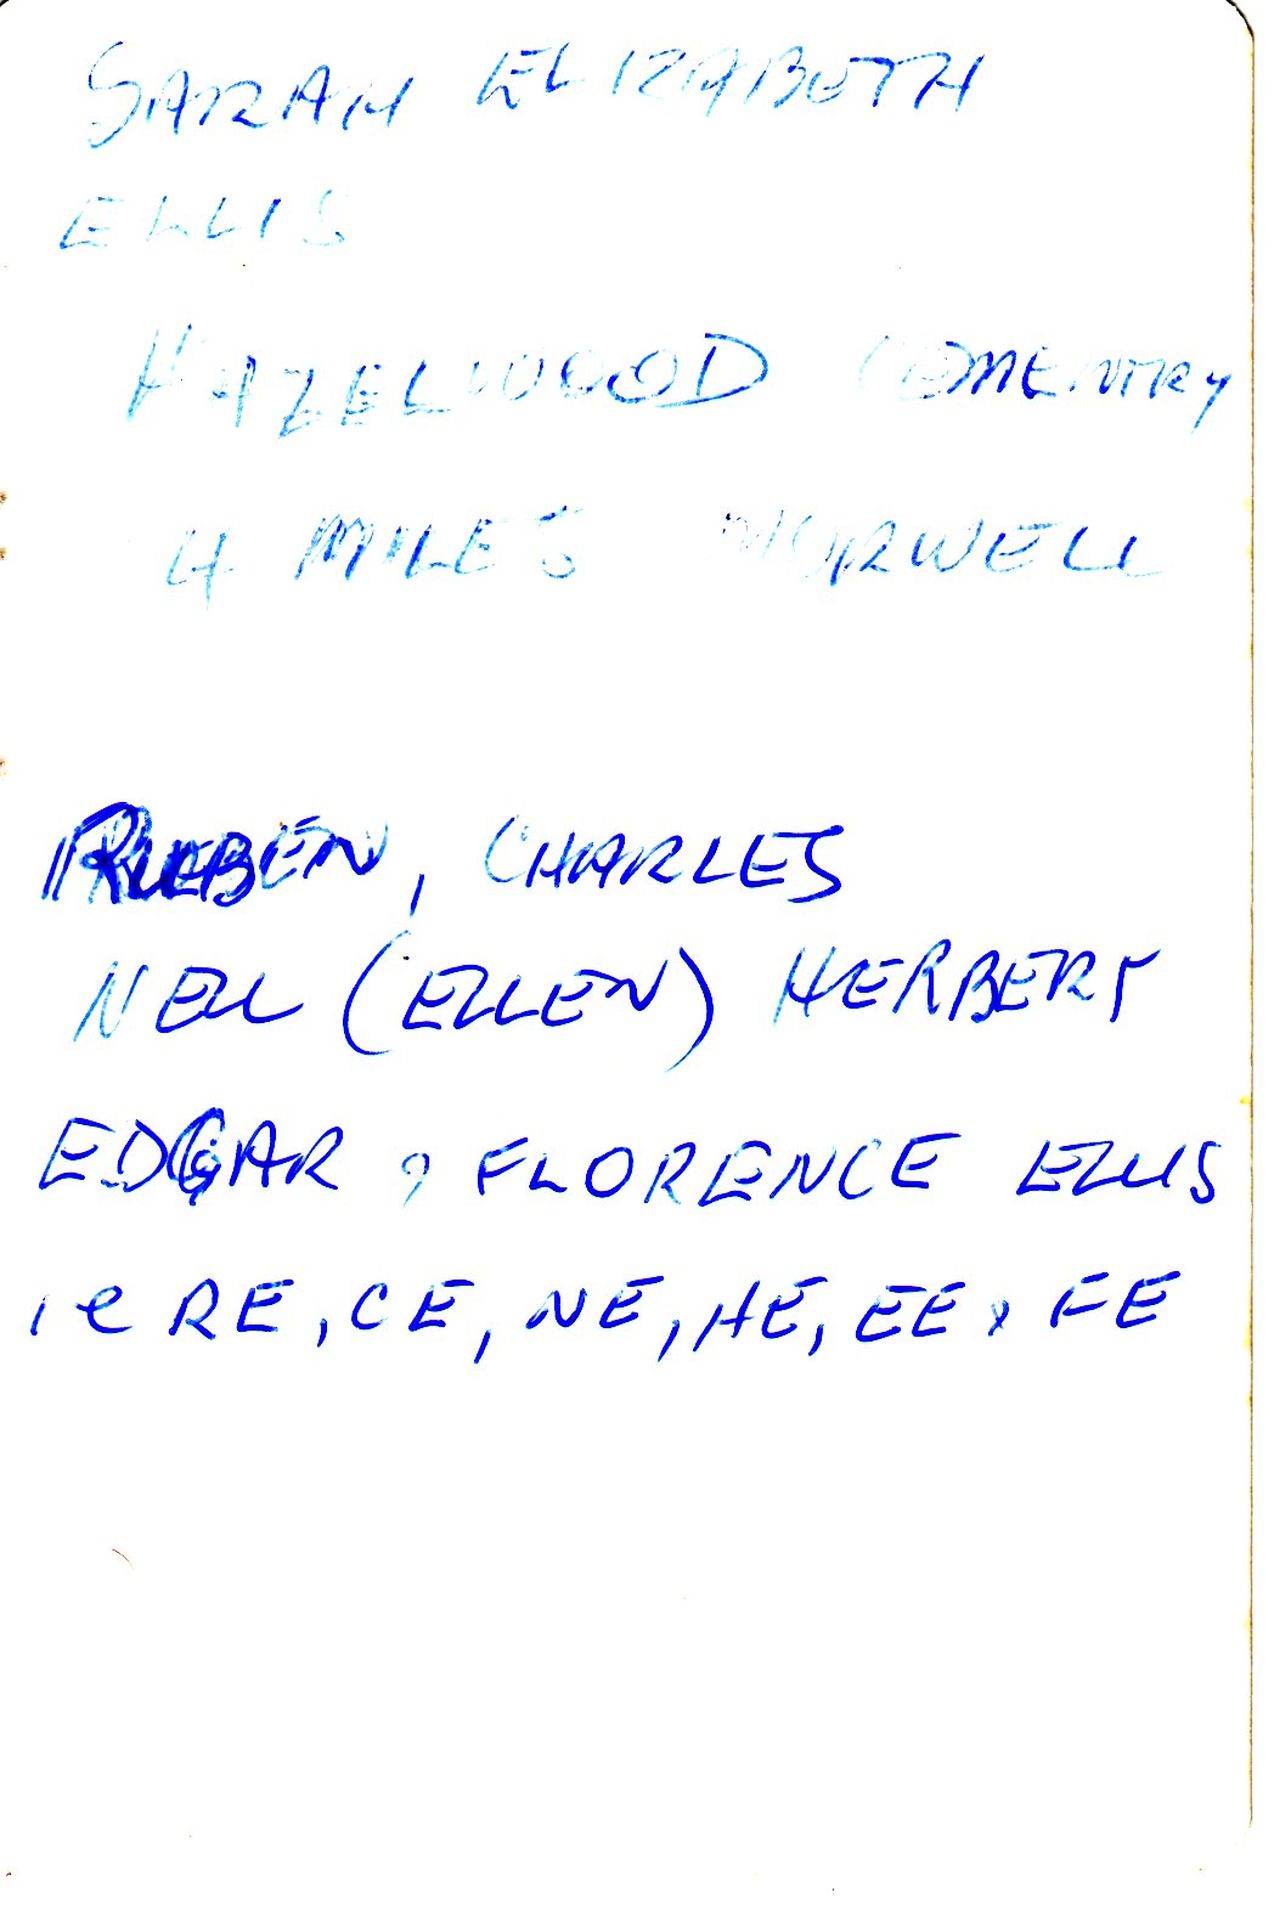 SARAH ELIZABETH
ELLIS
HAZELWOOD CEMENTRY
4 MILES MORWELL
RUEBEN, CHARLES
NELL (ELLEN) HERBERT
EDGAR, FLORENCE ELLIS
ie RE, CE, NE, HE, EE, FE